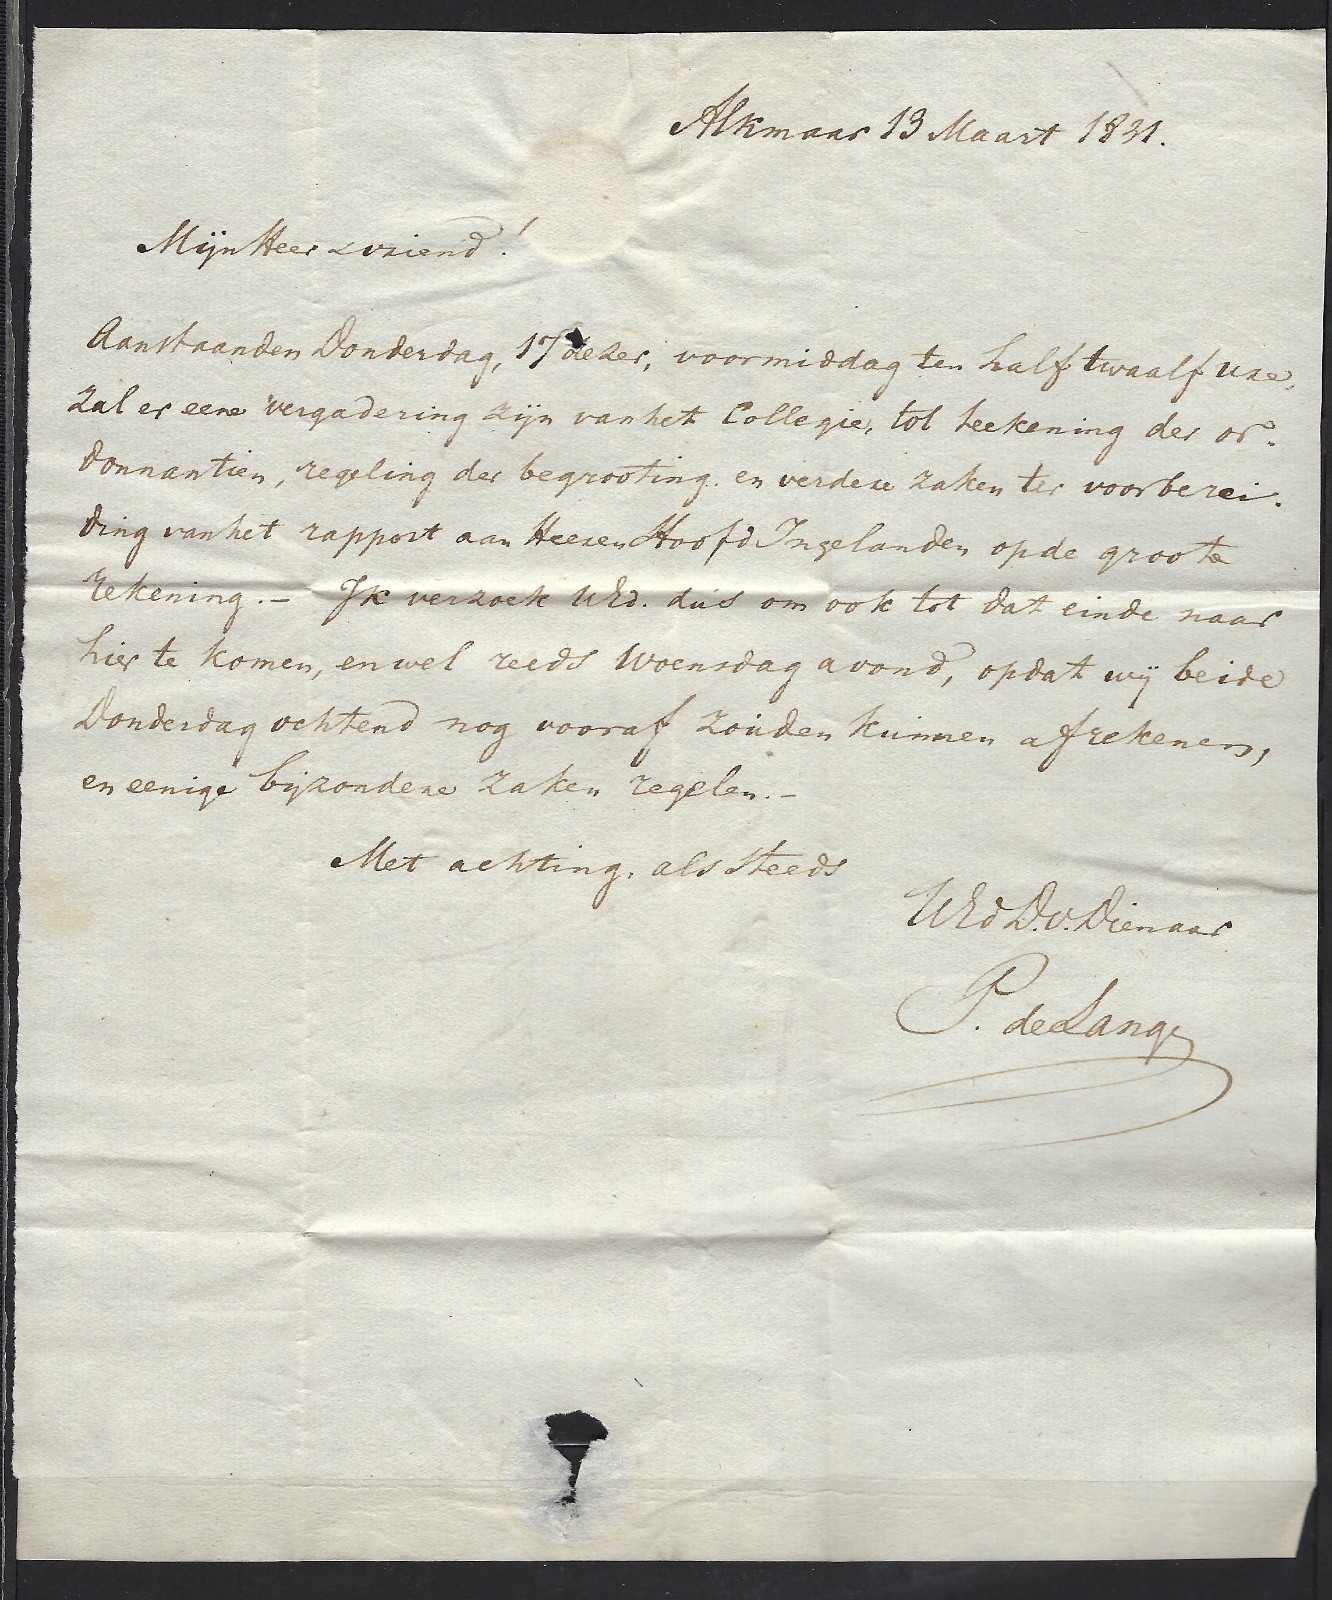 Alkmaar 13 Maart 1831.
Mijn Heer & vriend!
Aanstaanden Donderdag, 17 dezer, voormiddag ten half twaalf ure,
zal er eene vergadering zijn van het Collegie, tot teekening der or-
donnantien, regeling der begrooting en verdere zaken ter voorberei-
ding van het rapport aan Heeren Hoofd Ingelanden op de groote
rekening. — Ik verzoek UEd. dus om ook tot dat einde naar
hier te komen, en wel reeds Woensdag avond, opdat wij beide
Donderdag ochtend nog vooraf zouden kunnen afrekenen,
en eenige bijzondere zaken regelen. —
Met achting, als steeds
UEd D.v. Dienaar
P. de Lange